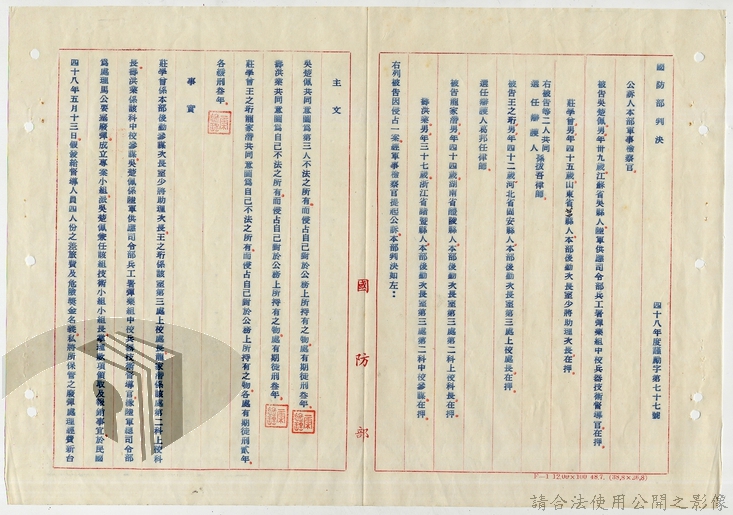 國防部判決
四十八年度護勛字第七十七號
公訴人本部軍事檢察官。
被告吳楚佩男年卅九歲江蘇省吳縣人陸軍供應司令部兵工署彈藥組中校兵器技術督導官在押。
莊學曾男年四十五歲山東省縣人本部後勤次長室少將助理次長在押。
右被告等二人共同選任辯護人孫祓吾律師。
被告王之珩男年四十二歲河北省固安縣人本部後勤次長室第三處上校處長在押。
選任辯護人葛邦任律師。
被告龐家濳男年四十四歲湖南省醴陵縣人本部後勤次長室第三處第二科上校科長在押。
壽洪葉男年三十七歲浙江省諸暨縣人本部後勤次長室第三處第二科中校參謀在押。
右列被告因侵占一案經軍事檢察官提起公訴本部判決如左:
國防部
主文
吳楚佩共同意圖爲第三人不法之所有而侵占自己對於公務上所持有之物處有期徒刑叁年。
壽洪葉共同意圖爲自己不法之所有而侵占自己對於公務上所持有之物處有期徒刑叁年。
莊學曾王之珩龐家濳共同意圖爲自己不法之所有而侵占自己對於公務上所持有之物各處有期徒刑貳年。
各緩刑叁年。
事實
莊學曾係本部後勤參謀次長室少將助理次長王之珩係該室第三處上校處長龐家濳係該處第二科上校科
長壽洪葉係該科中校參謀吳楚佩係陸軍供應司令部兵工署彈藥組中校兵器技術督導官緣陸軍總司令部
爲處理馬公要港廢彈成立專案小組派吳楚佩兼任該組技術小組小組長辦理款項領取及報銷事宜於民國
四十八年五月十三日假發給督導人員四人份之差旅費及危險獎金名義私將所保管之廢彈處理經費新台
F—1 12,00×100 48.7. (38,8×26,8)
請合法使用公開之影像